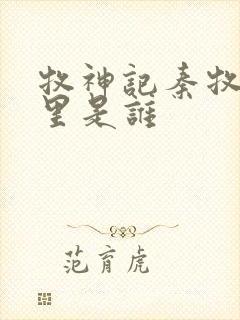 牧神記秦牧
里是誰
范育虎